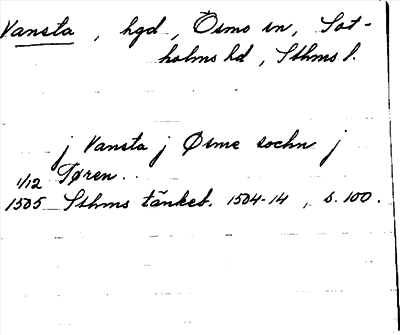 Vansta, hgd, Ösmo sn, Sot-
holms hd, Sthms l.
j Vansta j Øsme sochn j
Tøren..
1/12
1505 Sthms tänkeb. 1504-14, s. 100.